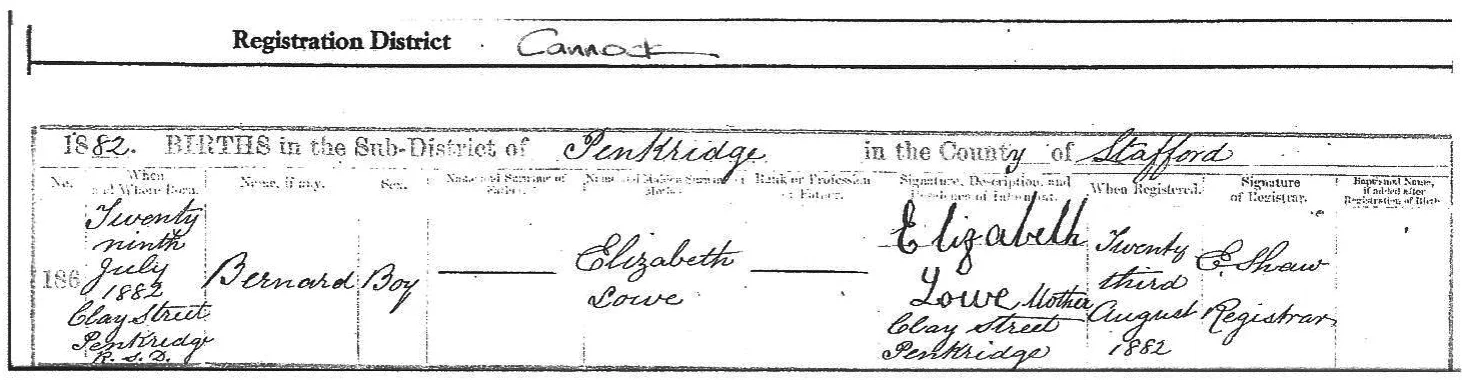 Registration District Cannock
1882. BIRTHS in the Sub-District of Penkridge in the County of Stafford
No. When and Where Born. Name, if any. Sex. Name and Surname of Father. Name and Maiden Surname of Mother. Rank or Profession of Father. Signature, Description, and Residence of Informant. When Registered. Signature of Registrar. Baptismal Name, if added after Registration of Birth
186
Twenty
ninth
July
1882
Clay Street
Penkridge
R.S.D.
Bernard
Boy
Elizabeth
Lowe
Elizabeth
Lowe Mother
Clay Street
Penkridge
Twenty
third
August
1882
E. Shaw
Registrar